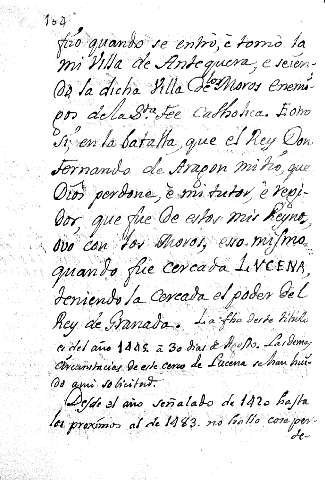 104
fizo quando se entrò, è tomò la
mi Villa de Antequera, e seiendo
la dicha Villa de los Moros enemi-
gos de la Sta. Fee Catholica. E otro
Sí, en la batalla, que el Rey Don
Fernando de Aragon mi tio, que
Dios perdone, è mi tutor, è regi-
dor, que fue de estos mis Reynos,
ovo con los Moros, esso mismo
quando fue cercada LVCENA,
teniendola cercada el poder del
Rey de Granada. La fho deste titulo
es del año 1448 à 30 dias de Agosto. Las demas
circunstacias de este cerco de Lucena se han hui-
do a mi solicitud.
Desde el año señalado de 1420 hasta
los proximos al de 1483. no hallo cosa per-
de-